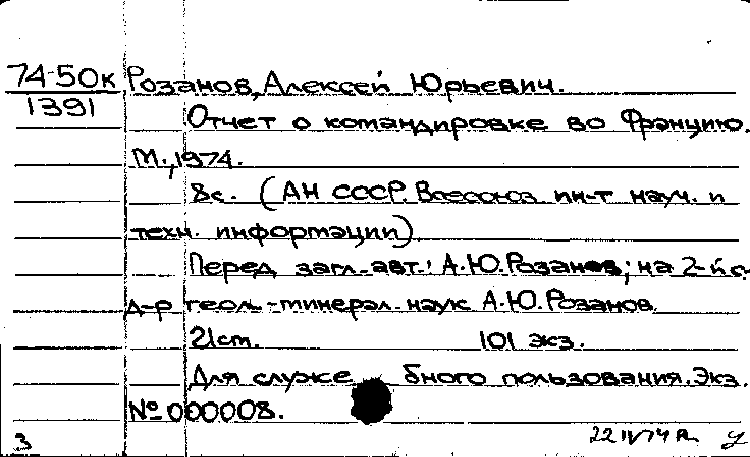 74-50к Розанов, Алексей Юрьевич.
1391
Отчет о командировке во Францию.
М., 1974.
8с. (АН СССР. Всесоюз. ин-т науч. и
техн. информации)
Перед загл. авт.: А.Ю.Розанов; на 2-й с.
д-р геол.-минерал. наук А.Ю.Розанов.
21см. 101 экз.
Для служебного пользования. Экз.
№ 000008.
3